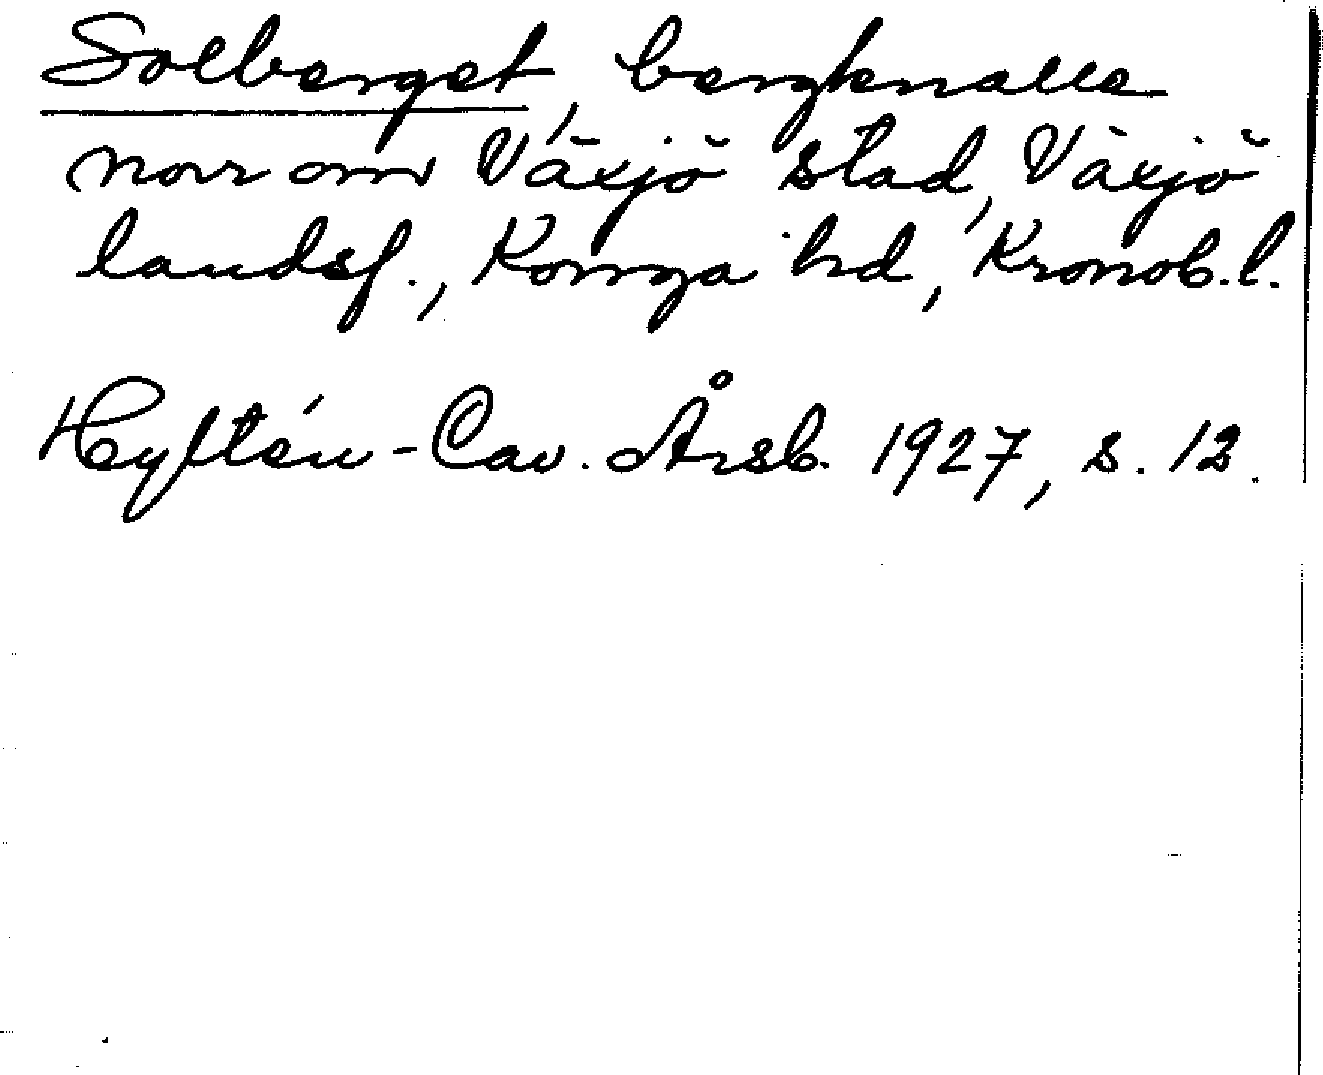 Solberget, bergknalle
norr om Växjö stad, Växjö
landsf., Konga hd, Kronob. l.
Hyltén-Cav. Årsb. 1927, s. 12.